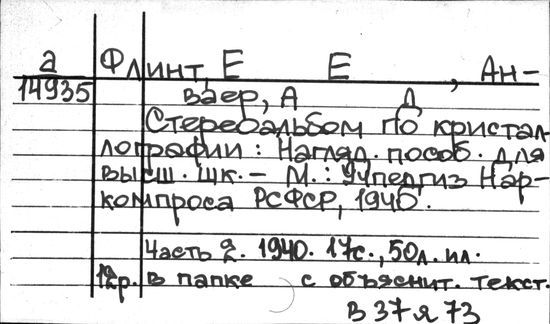 а Флинт, Е Е , Ан-
14935 ваер, А Д
Стереоальбом по кристал-
лографии: Нагляд. пособ. для
высш. шк. – М.: Учпедгиз Нар-
компроса РСФСР, 1940.
Часть 2. 1940. 17с., 50л. ил.
12р. в папке с объяснит. текст.
В 37 я 73